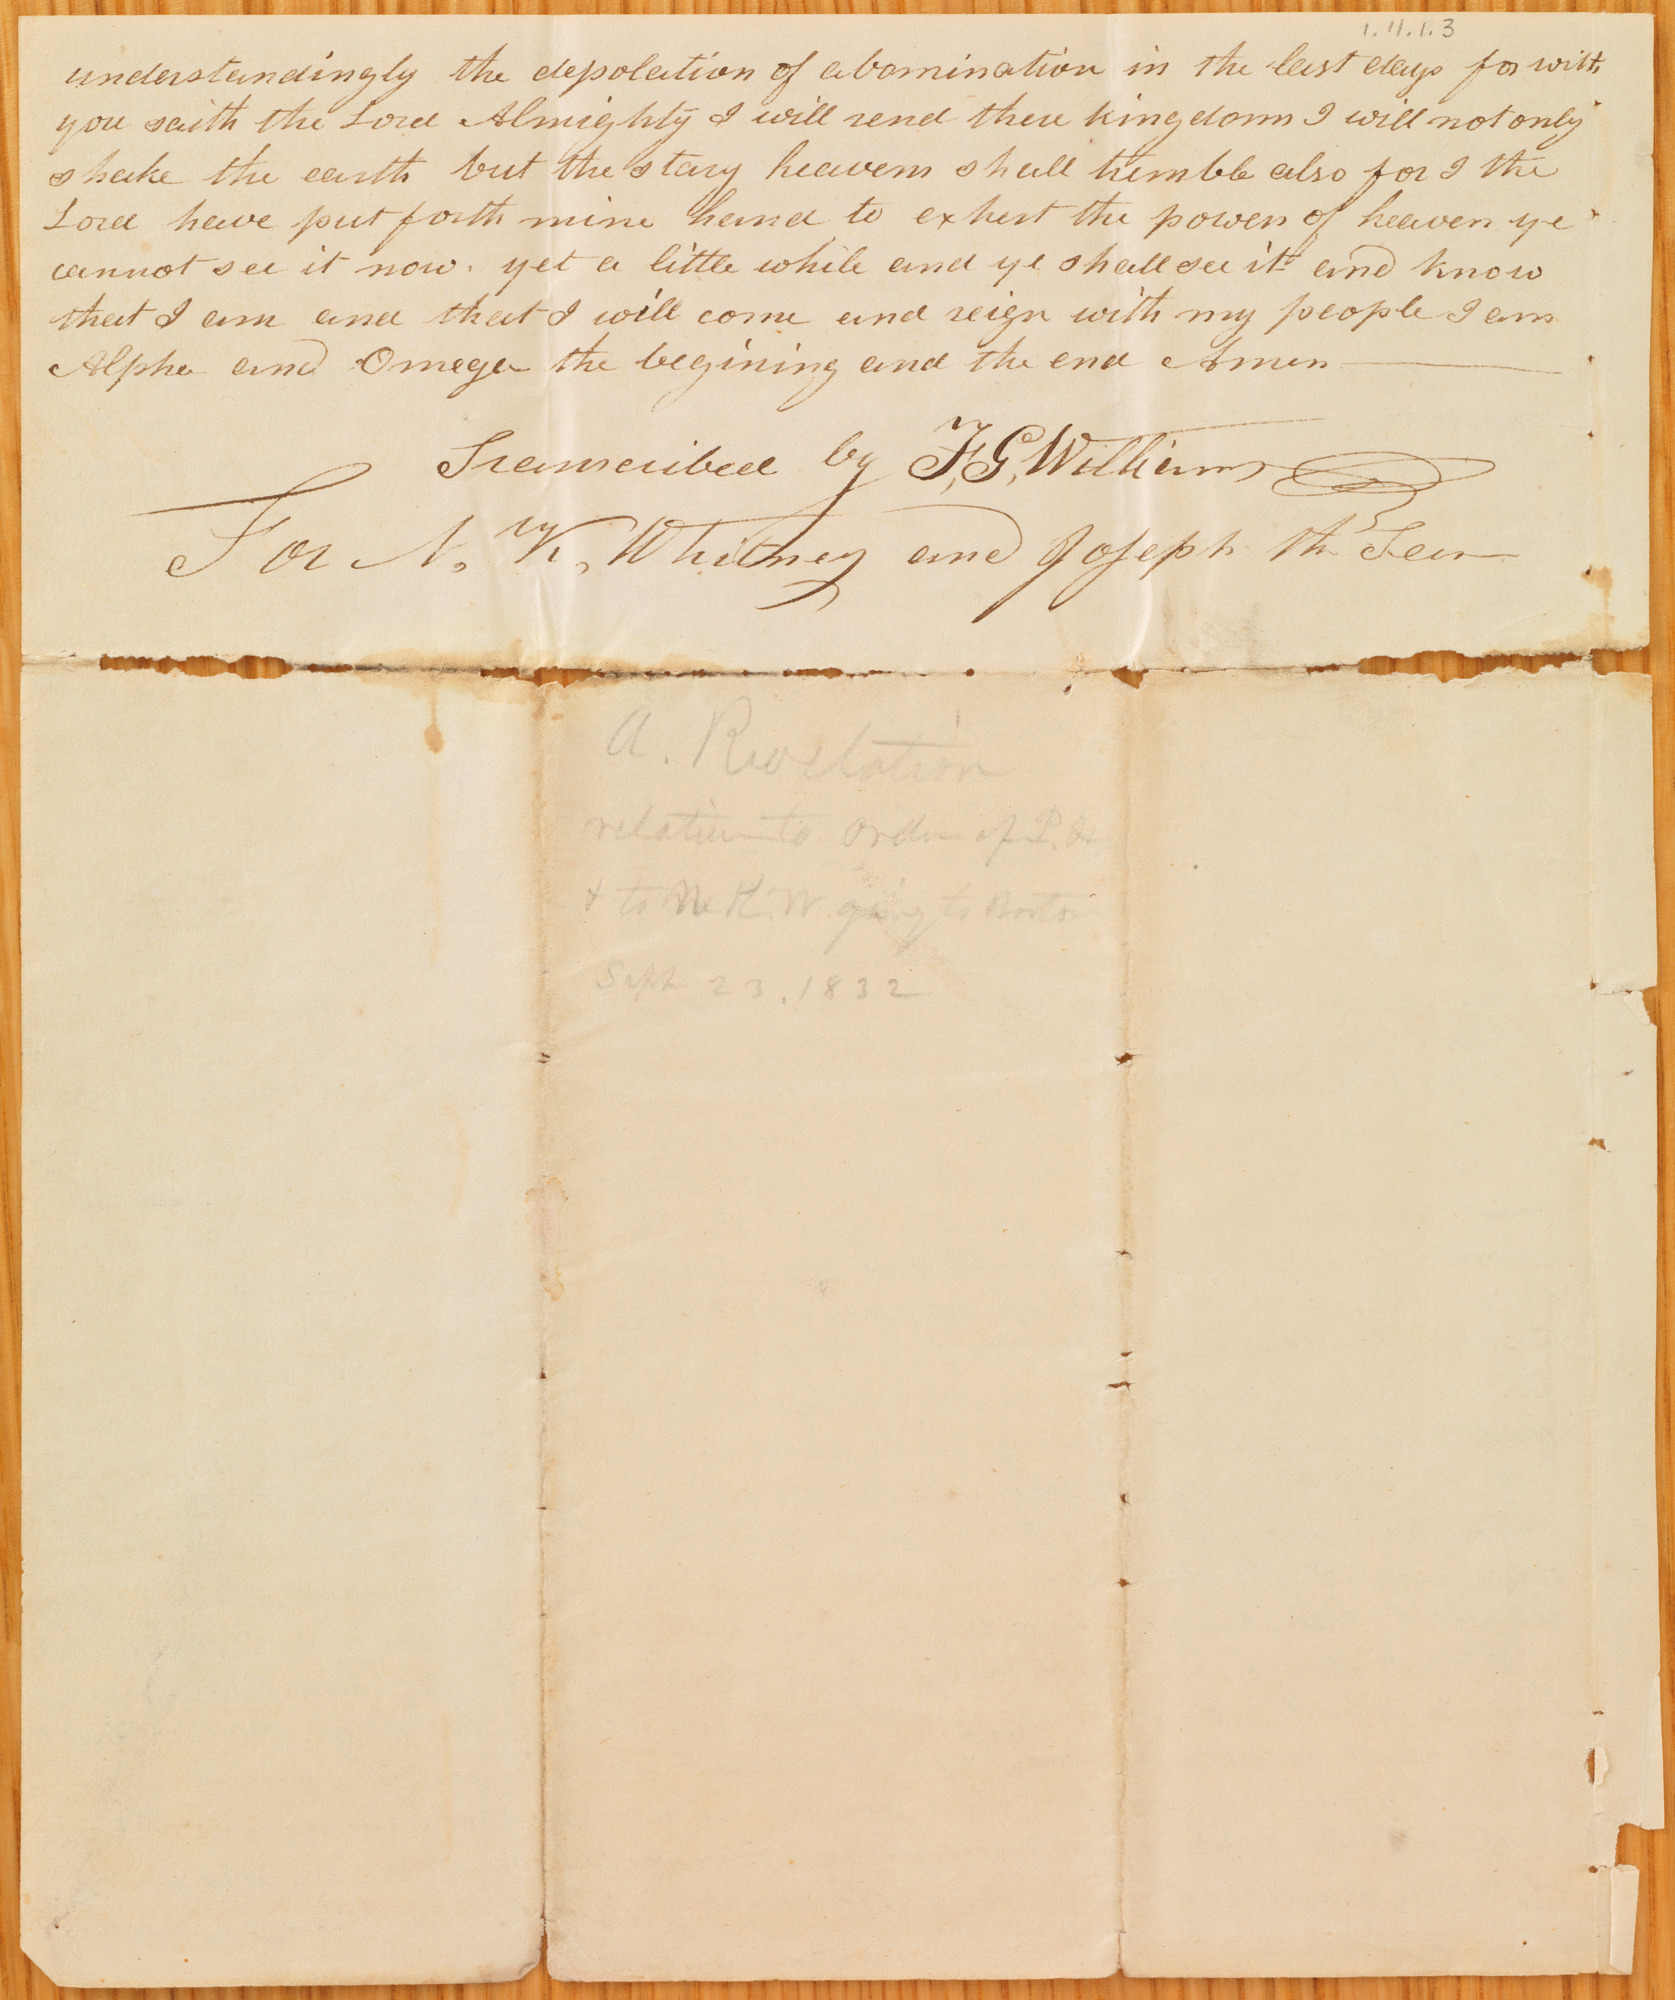 1.11.1.3
understandingly the depolation of abomination in the last days for with
you saith the Lord Almighty I will rend there kingdoms I will not only
shake the earth but the stary heavens shall trimble also for I the
Lord have put forth mine hand to exhert the powers of heaven ye
cannot see it now. yet a little while and ye shall see it and know
that I am and that I will come and reign with my people I am
Alpha and Omega the begining and the end Amen
Transcribed by F, G, Williams
For N. K, Whitney and Joseph th Seer
A. Revelation
relation to order of P.
+ to N. K. W. going to Boston
Sept 23, 1832